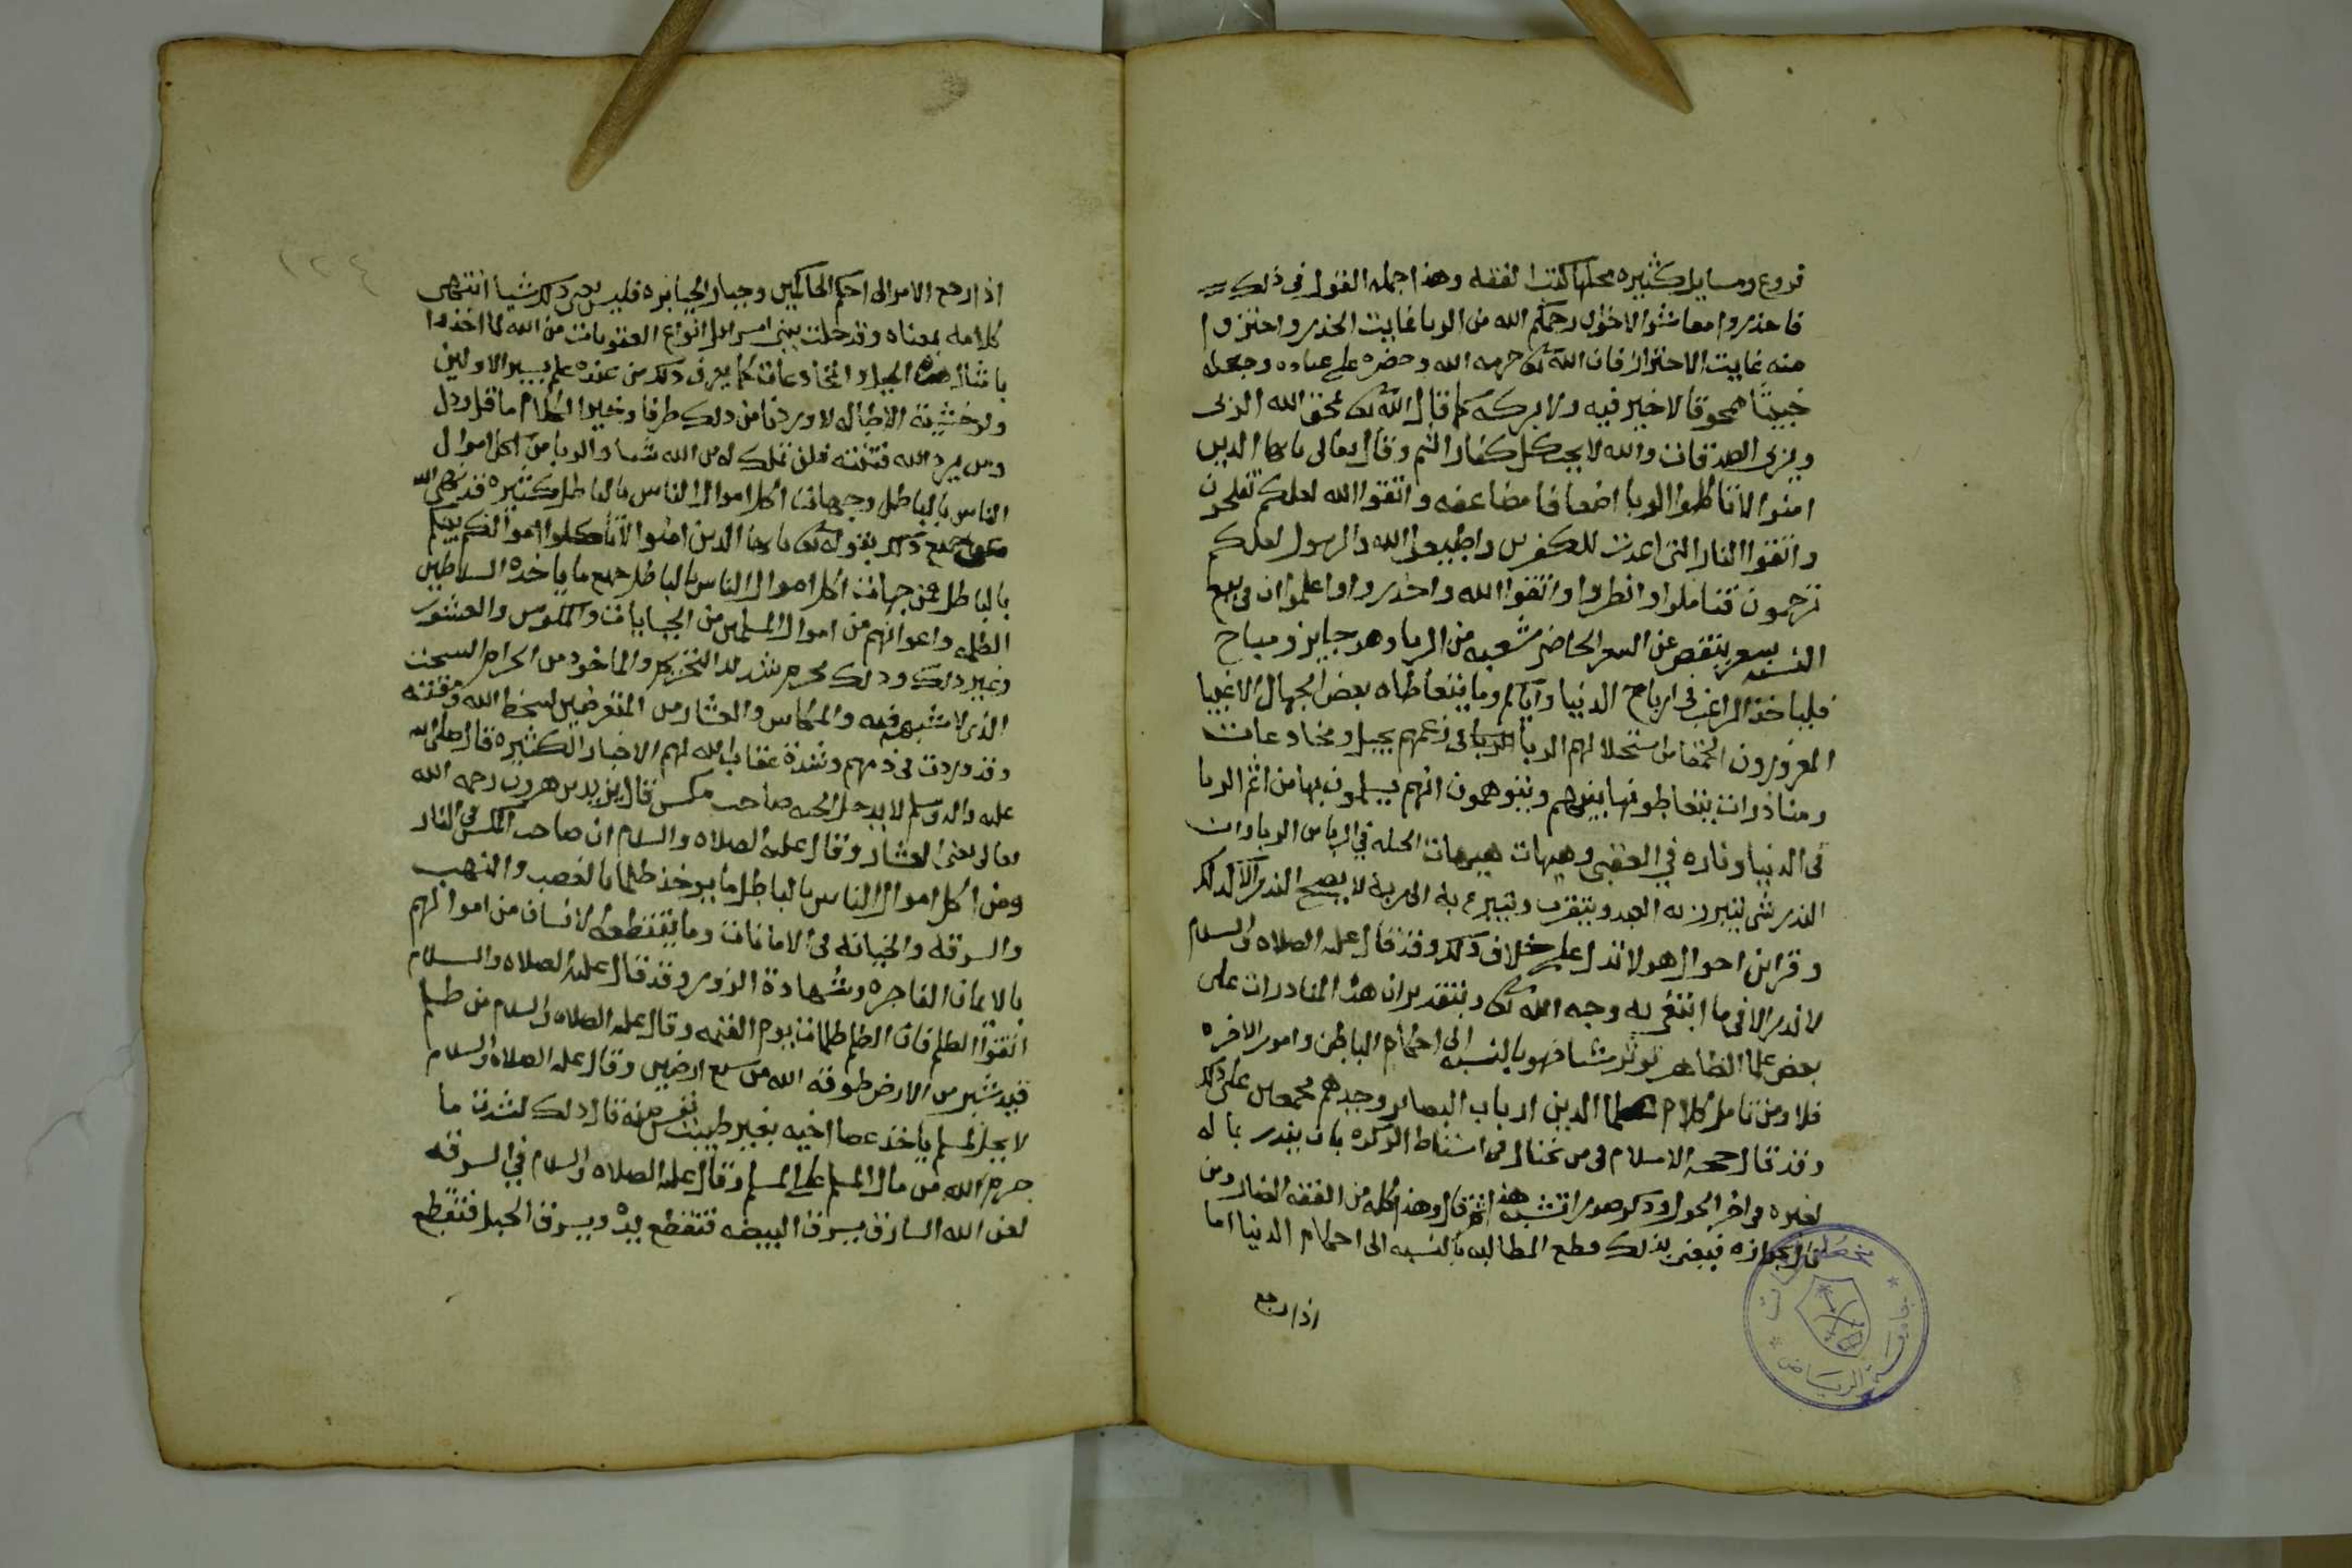 فروع ومسايل كثيره محلها كتب الفقه وهذا جمله القول في ذلك
فاحذروا معاشر الاخوان رحمكم الله من الربا غايت الحذر واحترزوا
منه غايت الاحتراز فان الله تعالى حرمه الله وحضره على عباده وجعله
خبيثا ممحوقا لا خير فيه ولا بركه كما قال الله تعالى يمحق الله الربى
ويربى الصدقات والله لا يحب كل كفار اثيم وقال تعالى يا ايها الدين
امنوا لا تاكلوا الربا اضعافا مضاعفه واتقوا الله لعلكم تفلحون
واتقوا النار التى اعدت للكفرين واطيعوا الله والرسول لعلكم
ترحمون فتاملوا وانظروا واتقوا الله واحذروا واعلموا ان في بيع
النسئه بسعر ينقص عن السعر الحاضر شعبه من الربا وهو جايز ومباح
فلياخذ الراغب في ارباح الدنيا واياكم وما يتعاطاه بعض الجهال الاغبيا
المغرورون الحمقا من استحلالهم الربا في زعمهم بحيل ومخادعات
ومناذرات يتعاطونها بينهم ويتوهمون انهم يسلمون بها من اثم الربا
في الدنيا وناره في العقبى وهيهات هيهات الحيله في الربا من الربا وان
النذر شي يتبرر به العبد ويتقرب ويتبرع به الى ربه لا يصح النذر الا كذلك
وقراين احوال هولا تدل على خلاف ذلك وقد قال عليه الصلاه والسلام
لا نذر الا في ما ابتغي به وجه الله تعالى وبتقدير ان هذه المناذرات على
بعض علما الظاهر توثر شيا فهو بالنسبه الى احكام الباطن وامور الاخره
فلا ومن تامل كلام علما الدين ارباب البصاير وجدهم مجمعين على ذلك
وقد قال حجه الاسلام في من يحتال في اسقاط الزكوه بان ينذر بماله
لغيره في اخر الحول وذكر صورا تشبه هذه ثم قال وهذا كله من الفقه الضار ومن
قال بجوازه فيعنى بذلك قطع المطالبه بالنسبه الى احكام الدنيا اما
اذا رجع
١٢٤
اذا رجع الامر الى احكم الحاكمين وجبار الجبابره فليس يغير ذلك شيا انتهى
كلامه بمعناه وقد حلت ببنى اسرايل انواع العقوبات من الله لما اخذوا
بامثال هذه الحيل والمخادعات كما يعرف ذلك من عنده علم بسير الاولين
ولو خشية الاطاله لاوردنا من ذلك طرفا وخير الكلام ما قل ودل
ومن يرد الله فتنته فلن تملك له من الله شيا والربا من اكل اموال
الناس بالباطل وجهات اكل اموال الناس بالباطل كثيره قد نهى الله
عن جميع ذلك بقوله تعالى يا ايها الدين امنوا لا تاكلوا اموالكم بينكم
بالباطل فمن جهات اكل اموال الناس بالباطل جميع ما ياخذه السلاطين
الظلمه واعوانهم من اموال المسلمين من الجبايات والمكوس والعشور
وغير ذلك وذلك محرم شديد التحريم والماخوذ من الحرام السحت
الذي لا شبهه فيه والمكاس والعشار من المتعرضين لسخط الله ومقته
وقد وردت في ذمهم وشدة عقاب الله لهم الاخبار الكثيره قال صلى الله
عليه واله وسلم لا يدخل الجنه صاحب مكس قال يزيد بن هرون رحمه الله
تعالى يعنى العشار وقال عليه الصلاه والسلام ان صاحب المكس في النار
ومن اكل اموال الناس بالباطل ما يوخذ ظلما بالغصب والنهب
والسرقه والخيانه في الامانات وما يقتطعه الانسان من اموالهم
بالايمان الفاجره وشهادة الزور وقد قال عليه الصلاه والسلام
اتقوا الظلم فان الظلم ظلمات يوم القيمه وقال عليه الصلاه والسلام من ظلم
قيد شبر من الارض طوقه الله من سبع ارضين وقال عليه الصلاه والسلام
لا يحل لمسلم ياخذ عصا اخيه بغير طيبت نفس منه قال ذلك لشدت ما
حرم الله من مال المسلم على المسلم وقال عليه الصلاه والسلام في السرقه
لعن الله السارق يسرق البيضه فتقطع يده ويسرق الحبل فتقطع
جامعة الرياض